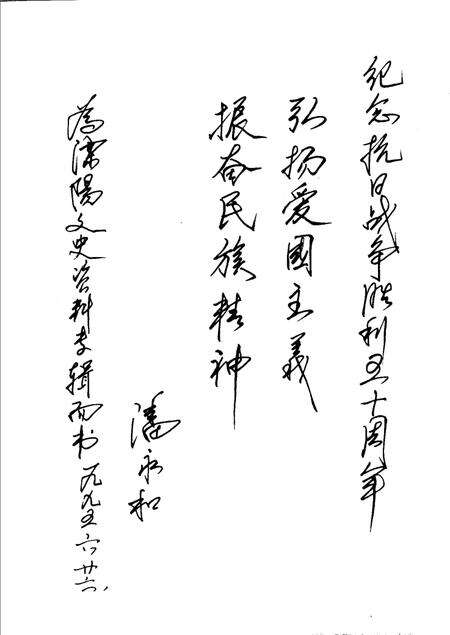 纪念抗日战争胜利五十周年
弘扬爱國主義
振奋民族精神
潘永和
為溧陽文史资料专辑而书 一九九五 六 廿六、